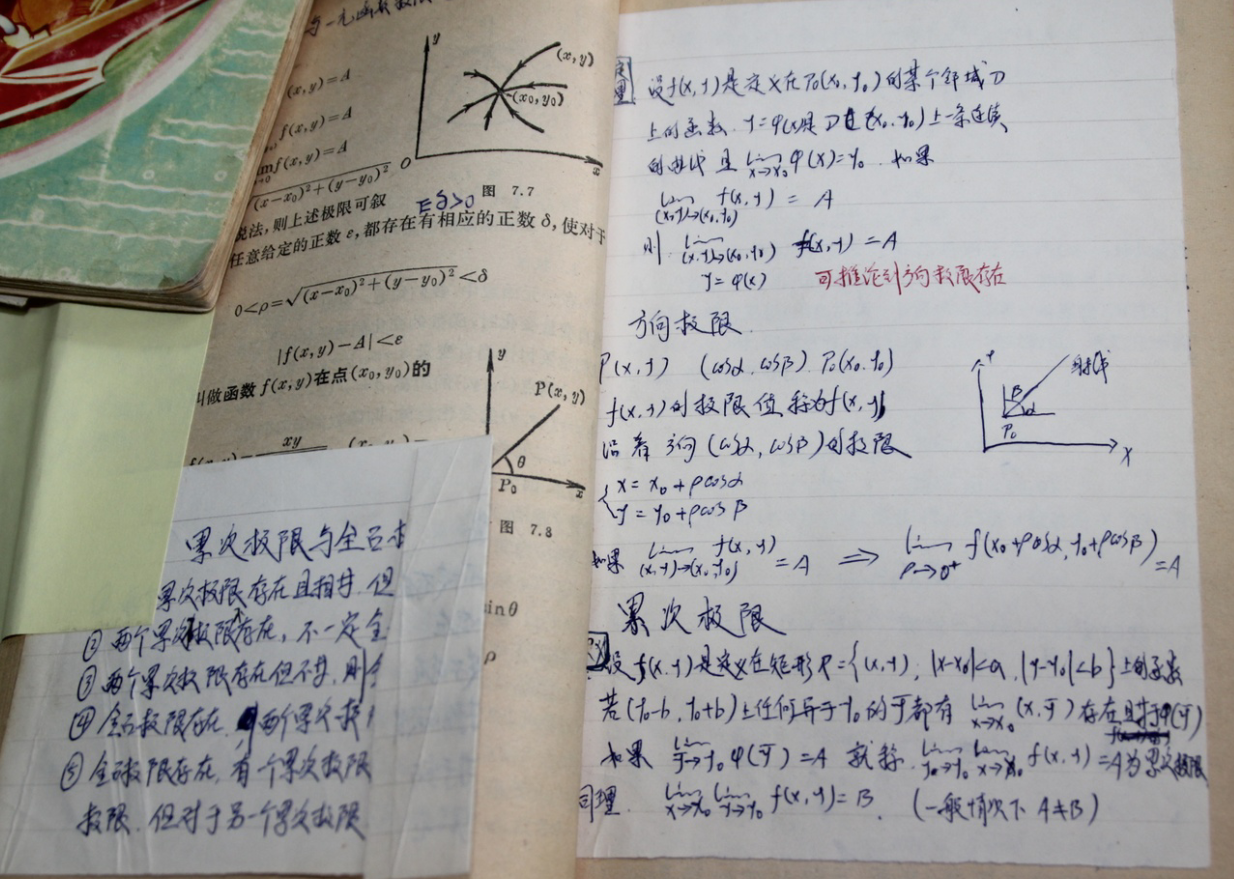 与一元函数极限
(x,y)=A
f(x,y)=A
f(x,y)=A
(x-x₀)²+(y-y₀)²
y
(x,y)
(x₀,y₀)
O
x
图 7.7
∃δ>0
说法,则上述极限可叙
任意给定的正数 ε,都存在有相应的正数 δ,使对于
0<ρ=√(x-x₀)²+(y-y₀)²<δ
|f(x,y)-A|<ε
叫做函数 f(x,y)在点(x₀,y₀)的
xy
y
P(x,y)
θ
P₀
x
图 7.8
sinθ
ρ
累次极限与全面
累次极限存在且相等,但
② 两个累次极限存在,不一定全
③ 两个累次极限存在但不等,则
④ 全面极限存在, 两个累次极
⑤ 全面极限存在,有一个累次极限
极限,但对于另一个累次极限
定理
设f(x,y)是定义在P₀(x₀,y₀)的某个邻域D
上的函数. y=φ(x)是D过(x₀,y₀)上一条连续
的曲线且 lim x→x₀ φ(x)=y₀. 如果
lim (x,y)→(x₀,y₀) f(x,y) = A
则 lim (x,y)→(x₀,y₀) y=φ(x) f(x,y)=A
可推论到方向极限存在
方向极限
P(x,y) (cosα,cosβ) P₀(x₀,y₀)
f(x,y)的极限值称为f(x,y)
沿着方向(cosα,cosβ)的极限
{x=x₀+ρcosα
y=y₀+ρcosβ
y
射线
β
α
P₀
x
如果 lim (x,y)→(x₀,y₀) f(x,y) = A ⟹ lim ρ→0⁺ f(x₀+ρcosα,y₀+ρcosβ)=A
累次极限
定义
设f(x,y)是定义在矩形R={(x,y),|x-x₀|<a,|y-y₀|<b}上的函数
若(y₀-b,y₀+b)上任何异于y₀的ȳ都有 lim x→x₀ (x,ȳ)存在且于φ(ȳ)
如果 lim ȳ→y₀ φ(ȳ)=A 就称 lim y₀→y₀ lim x→x₀ f(x,y)=A为累次极限
同理. lim x→x₀ lim y→y₀ f(x,y)=B. (一般情况下 A≠B)